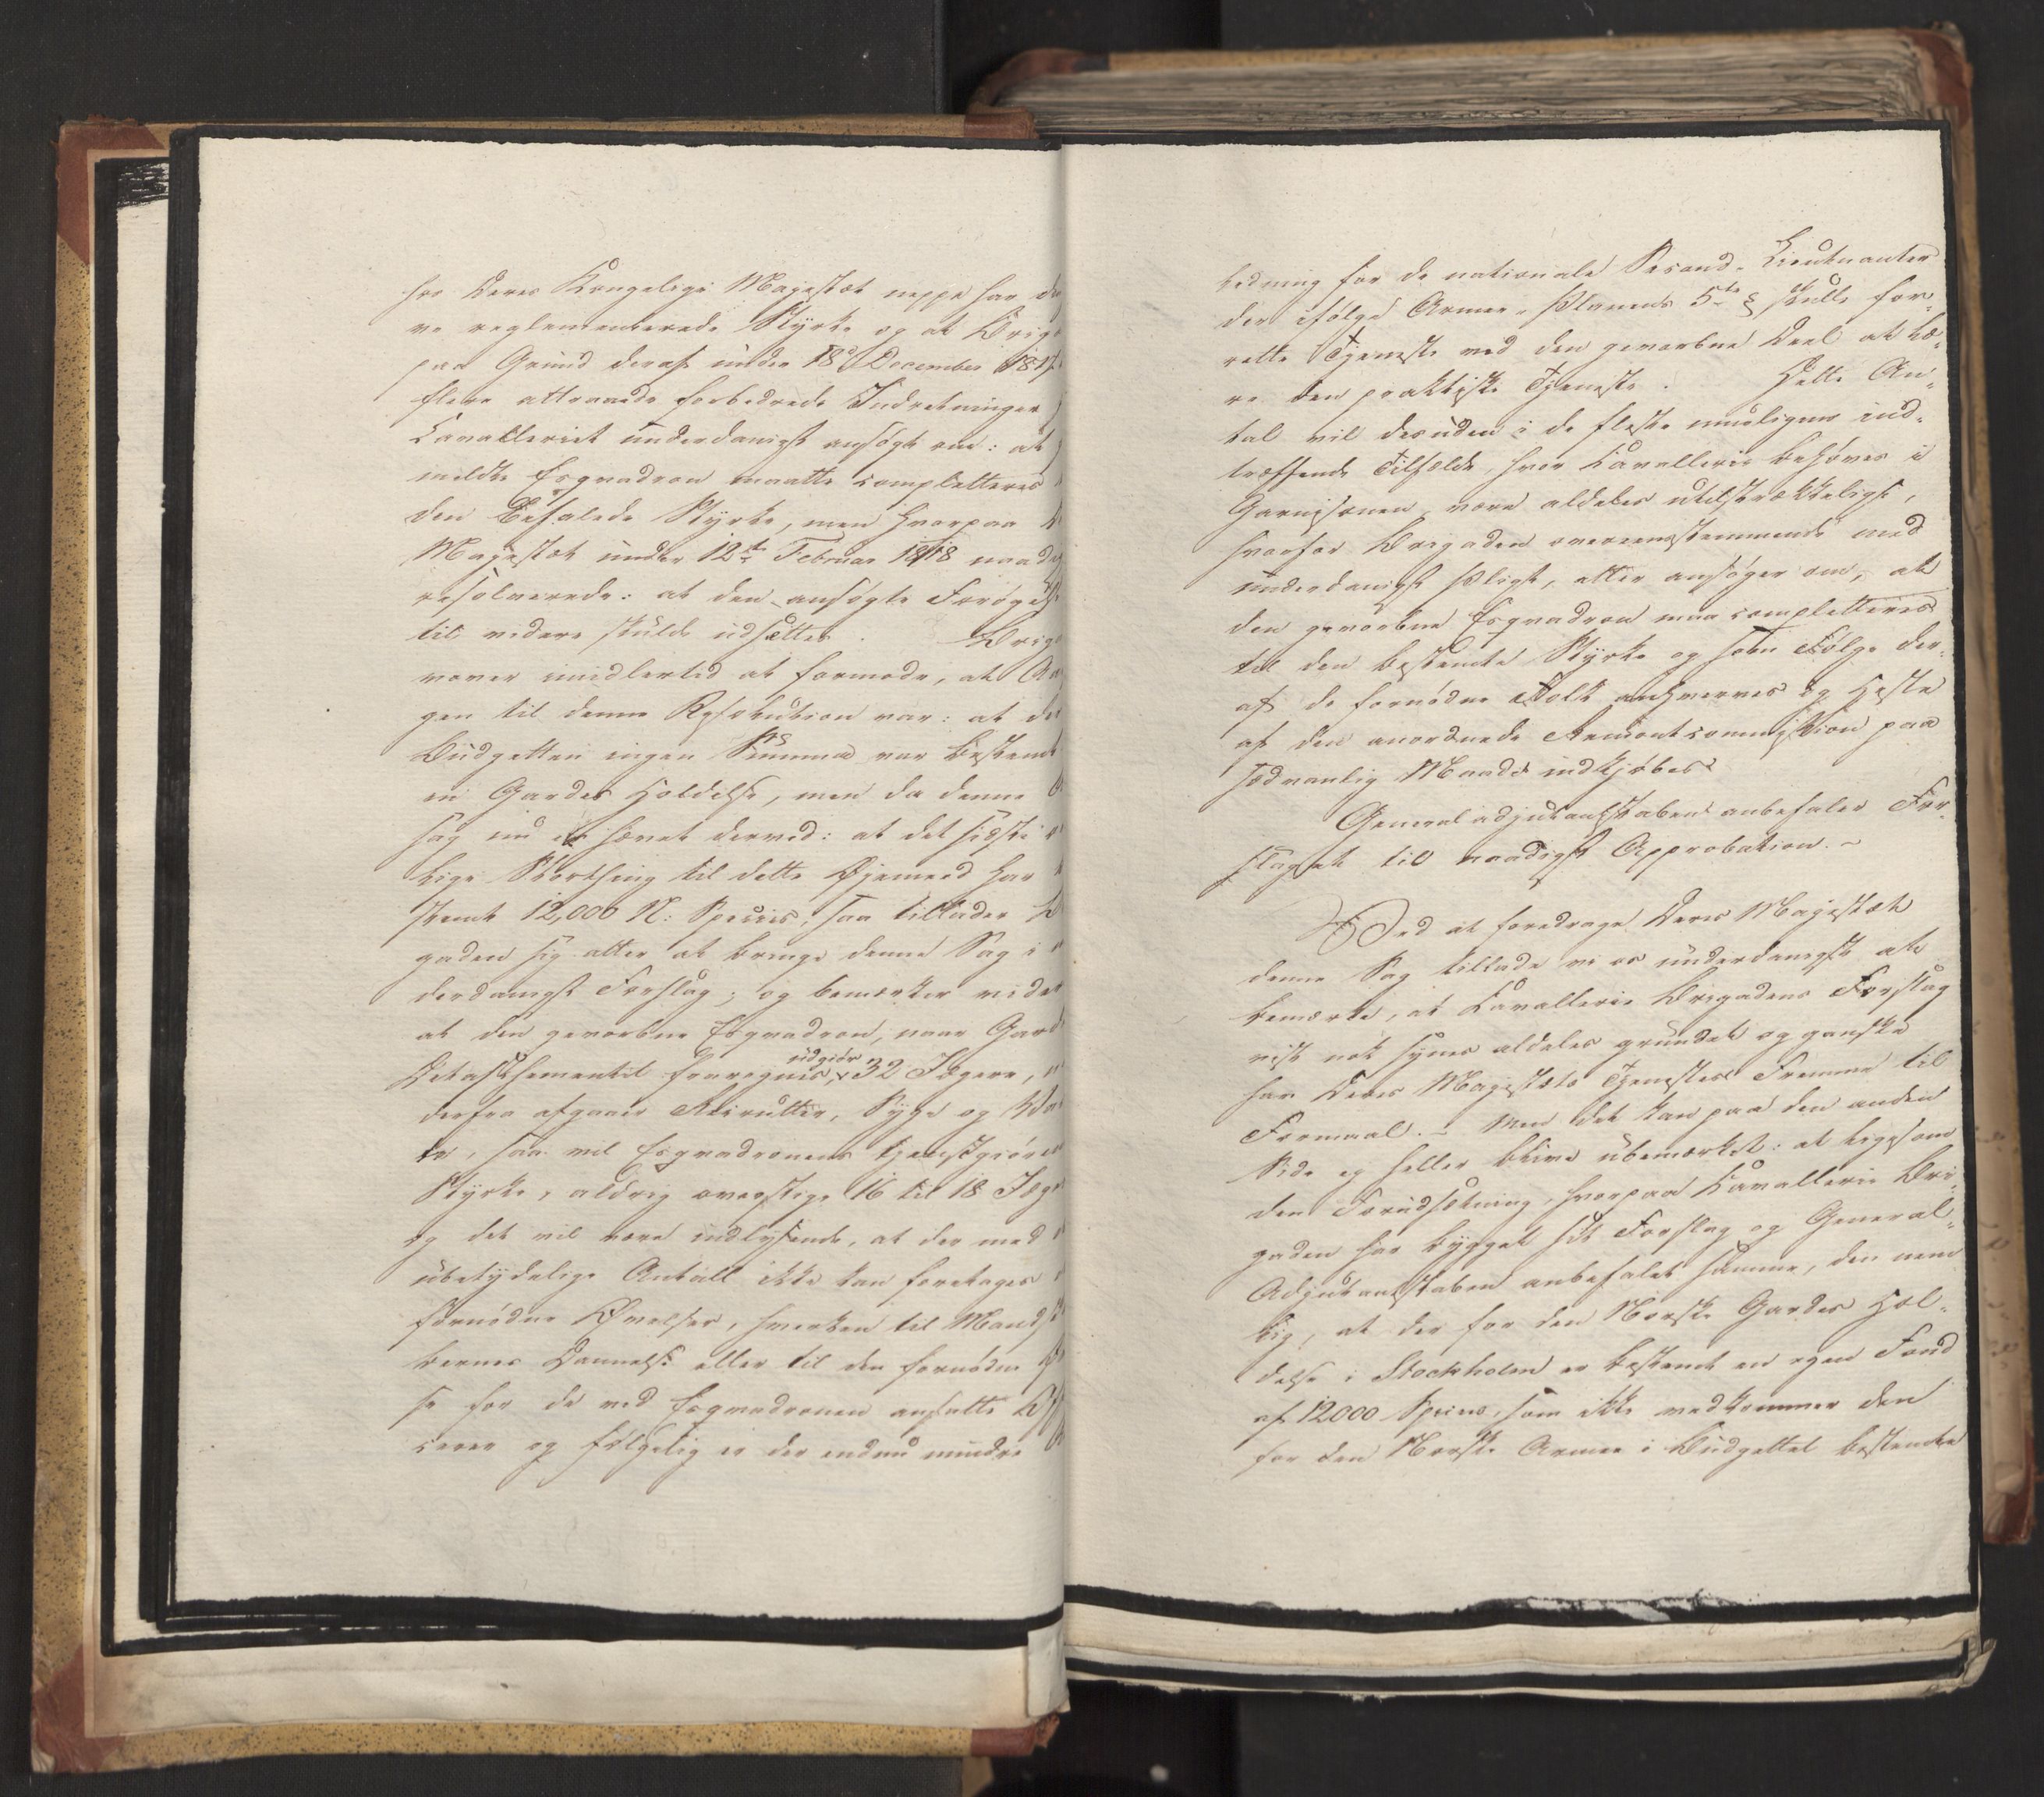 hos Deres Kongelige Majestæt neppe har de
re reglementerede Styrke og at Briga
paa Grund deraf under 18de December 1817
flere attraaede forbedrede Indretninger
Cavalleriet underdanigst ansøgte om: at
meldte Esqvadron maatte completteres
den befalede Styrke, men hvorpaa
Majestæt under 12te Februar 1818 naad
resolverede: at den ansøgte Forøgelse
til videre skulde udsættes. Briga
vover imidlertid at formode, at Aa
gen til denne Resolution var: at de
Budgetten ingen Summa var bestemt
en Gardes Holdelse, men da denne
sag nu er hævet derved: at det sidste
lige Storthing til dette Øjemeed har
stemt 12,000 N: Species, saa tillader
gaden sig atter at bringe denne Sag i
derdanigst Forslag; og bemærker videre
at den gevorbne Esqvadron, naar Garde
Detaschementil fraregnes, udgiør 32 Jægere,
derfra afgaaer Recrutter, Syge og Va
te, saa vil Esqvadronens tjenstgiøren
Styrke, aldrig overstige 16 til 18 Jæge
og det vil være indlysende, at der med
ubetydelige Antall ikke kan foretages
fornødne Øvelser, hverken til Mandsk
bernes Dannelse eller til den fornødne
se for de ved Esqvadronen ansatte Off
cerer og følgelig er der endnu mindre
ledning for de nationale Second-Lieutnanter
der ifølge Armee-Planens 5te § skulle for-
rette Tjeneste ved den gevorbne Deel at læ-
re den praktiske Tjeneste. Dette An-
tal vil desuden i de fleste mueligens ind-
træffende Tilfælde, hvor Cavallerie behøves i
Garnisonen, være aldeles utilstrækkeligt,
hvorfor Brigaden overeensstemmende med
underdanigst Pligt, atter ansøger om, at
den gevorbne Esqvadron maa completteres
til den bestemte Styrke og som Følge der-
af de fornødne Folk anhverves og Heste
af den anordnede Remontcommission paa
sædvanlig Maade indkjøbes.
Generaladjutantstaben anbefaler For-
slaget til naadigst Approbation.
Ved at foredrage Deres Majestæt
denne Sag tillade vi os underdanigst at
bemærke, at Cavallerie Brigadens Forslag
vist nok synes aldeles grundet og ganske
har Deres Majestæts Tjenestes Fremme til
Formaal. – Men det kan paa den anden
Side ej heller blive ubemærket: at ligesom
den Forudsætning, hvorpaa Cavallerie Bri-
gaden har bygget sit Forslag og General-
Adjutantstaben anbefalet samme, den nem
lig, at der for den Norske Gardes Hol-
delse i Stockholm er bestemt en egen Fond
af 12000 Species, som ikke vedkommer den
for den Norske Armee i Budgettet bestemte